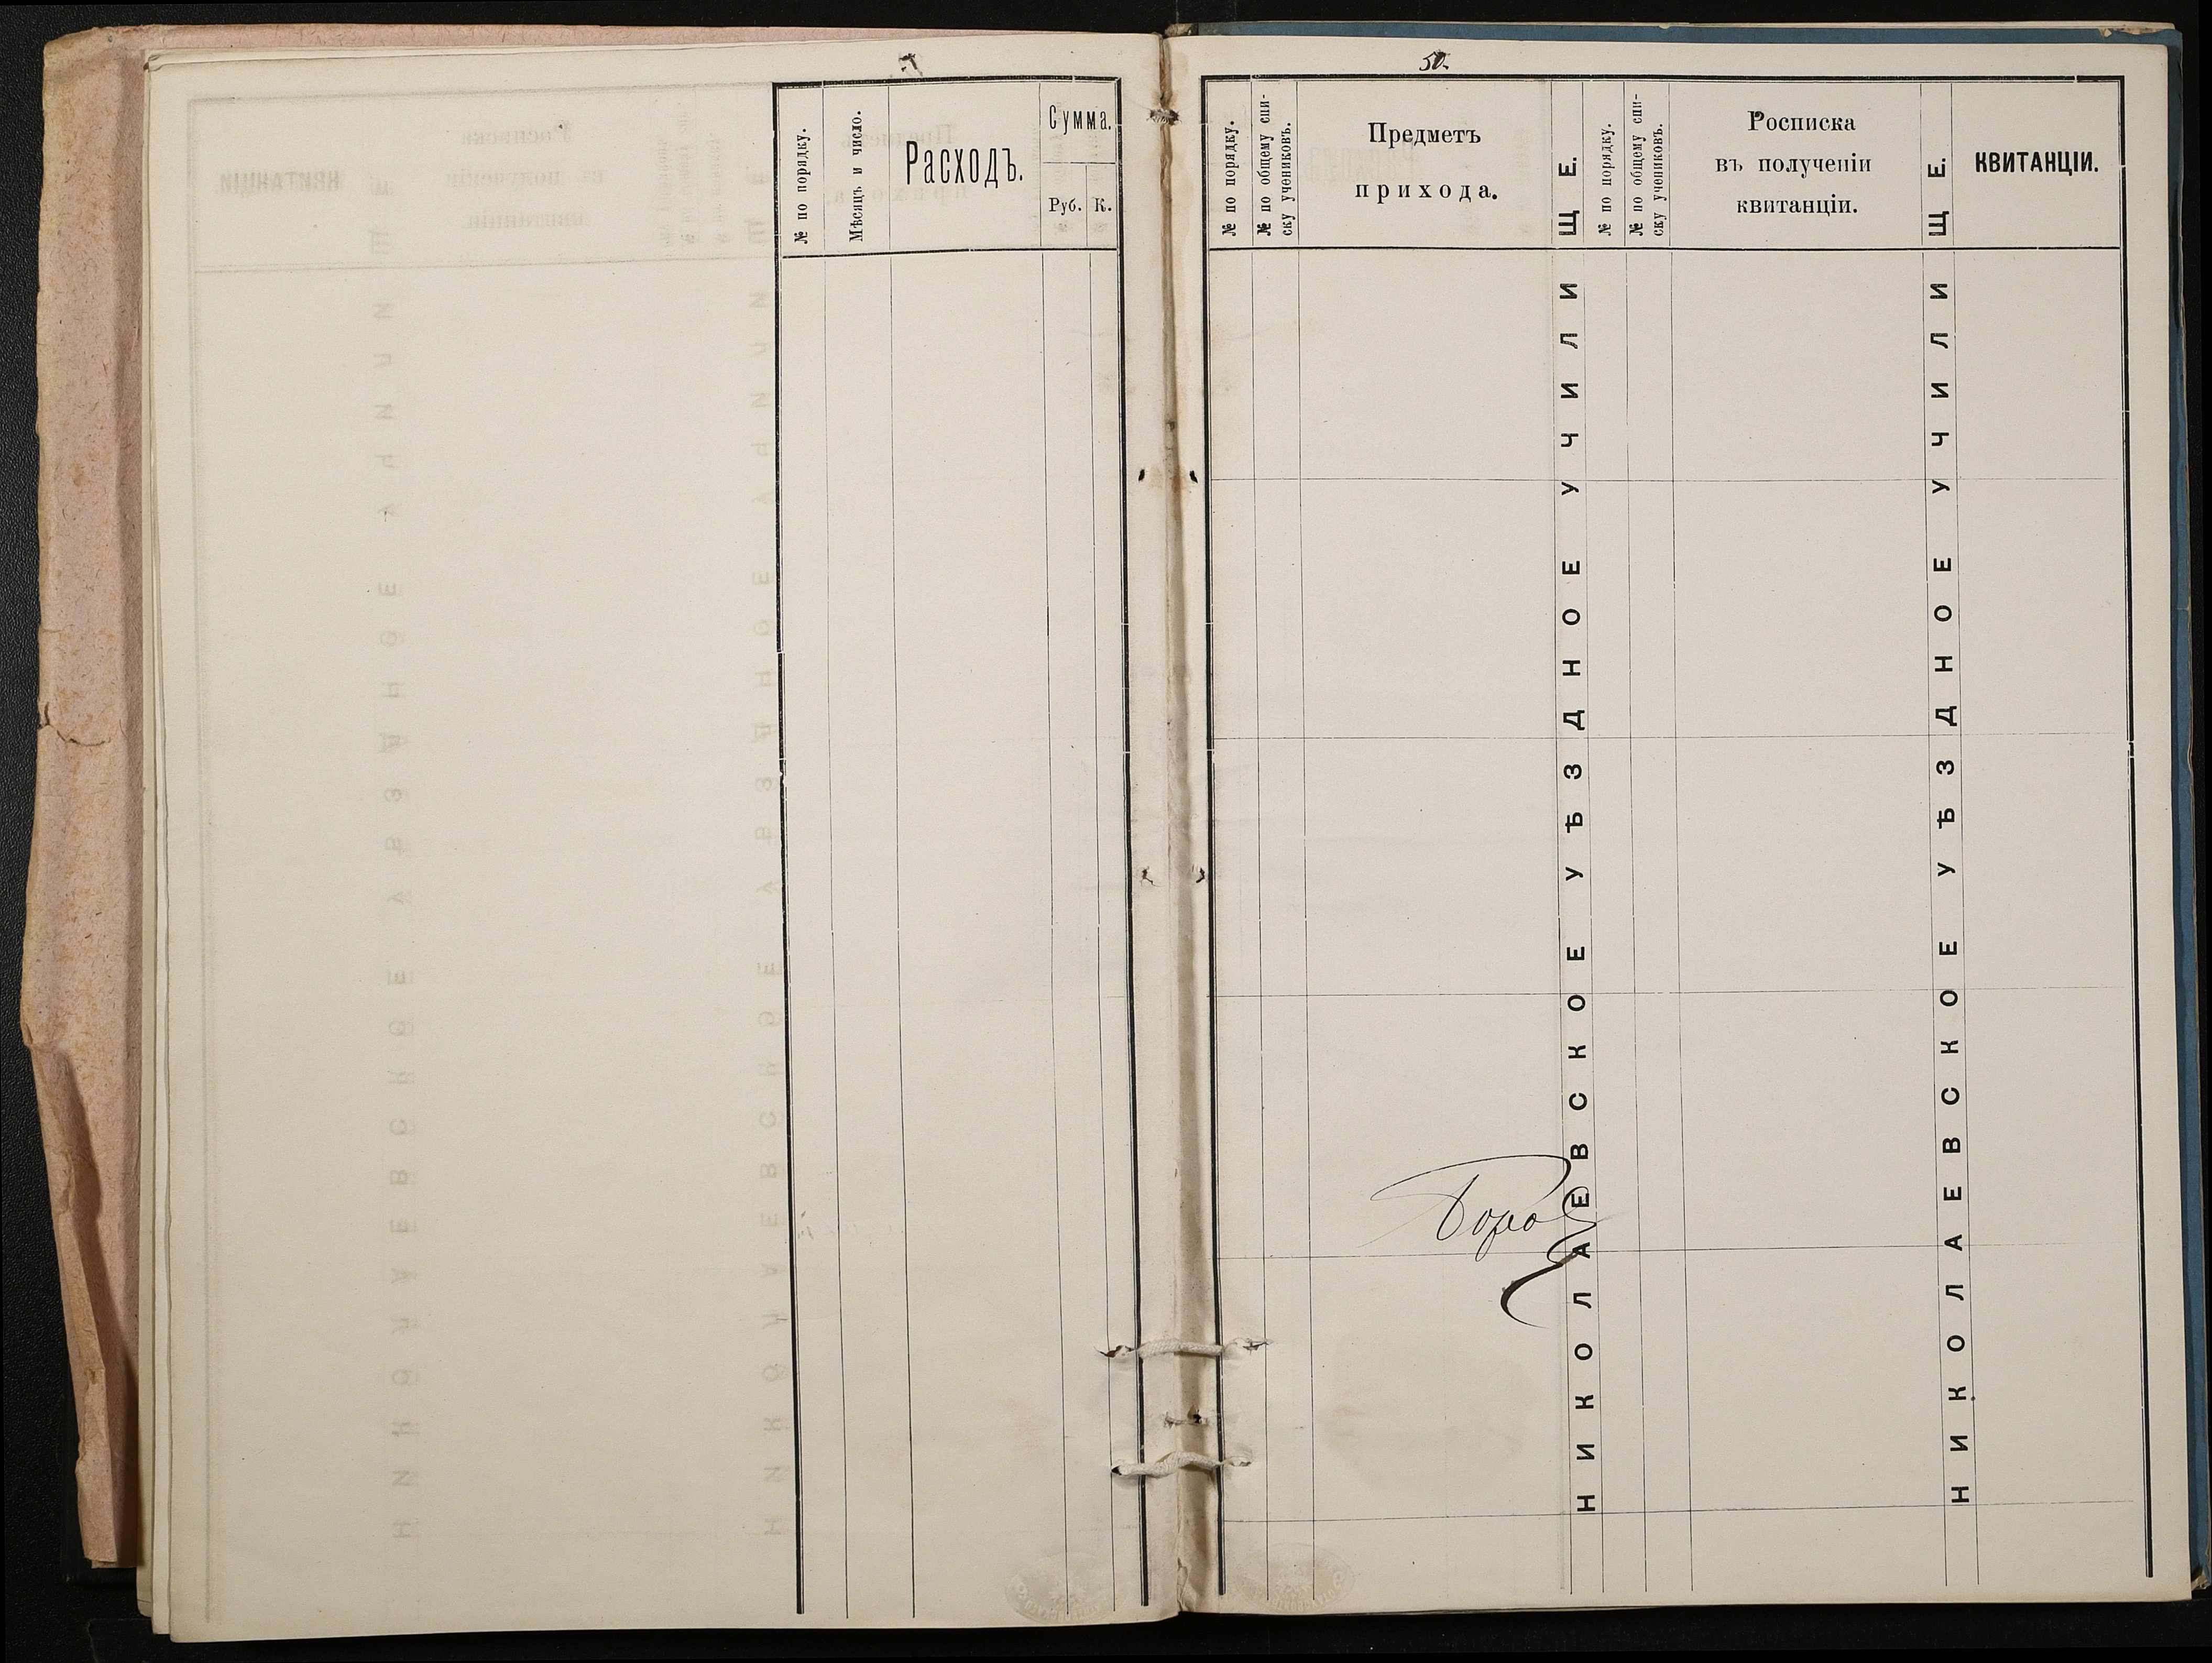 № по порядку.
Мѣсяцъ и число.
Расходъ.
Сумма.
Руб.
К.
50.
№ по порядку.
№ по общему спи-
ску учениковъ.
Предметъ
прихода.
НИКОЛАЕВСКОЕ УѢЗДНОЕ УЧИЛИЩЕ.
№ по порядку.
№ по общему спи-
ску учениковъ.
Росписка
въ полученіи
квитанціи.
НИКОЛАЕВСКОЕ УѢЗДНОЕ УЧИЛИЩЕ.
КВИТАНЦІИ.